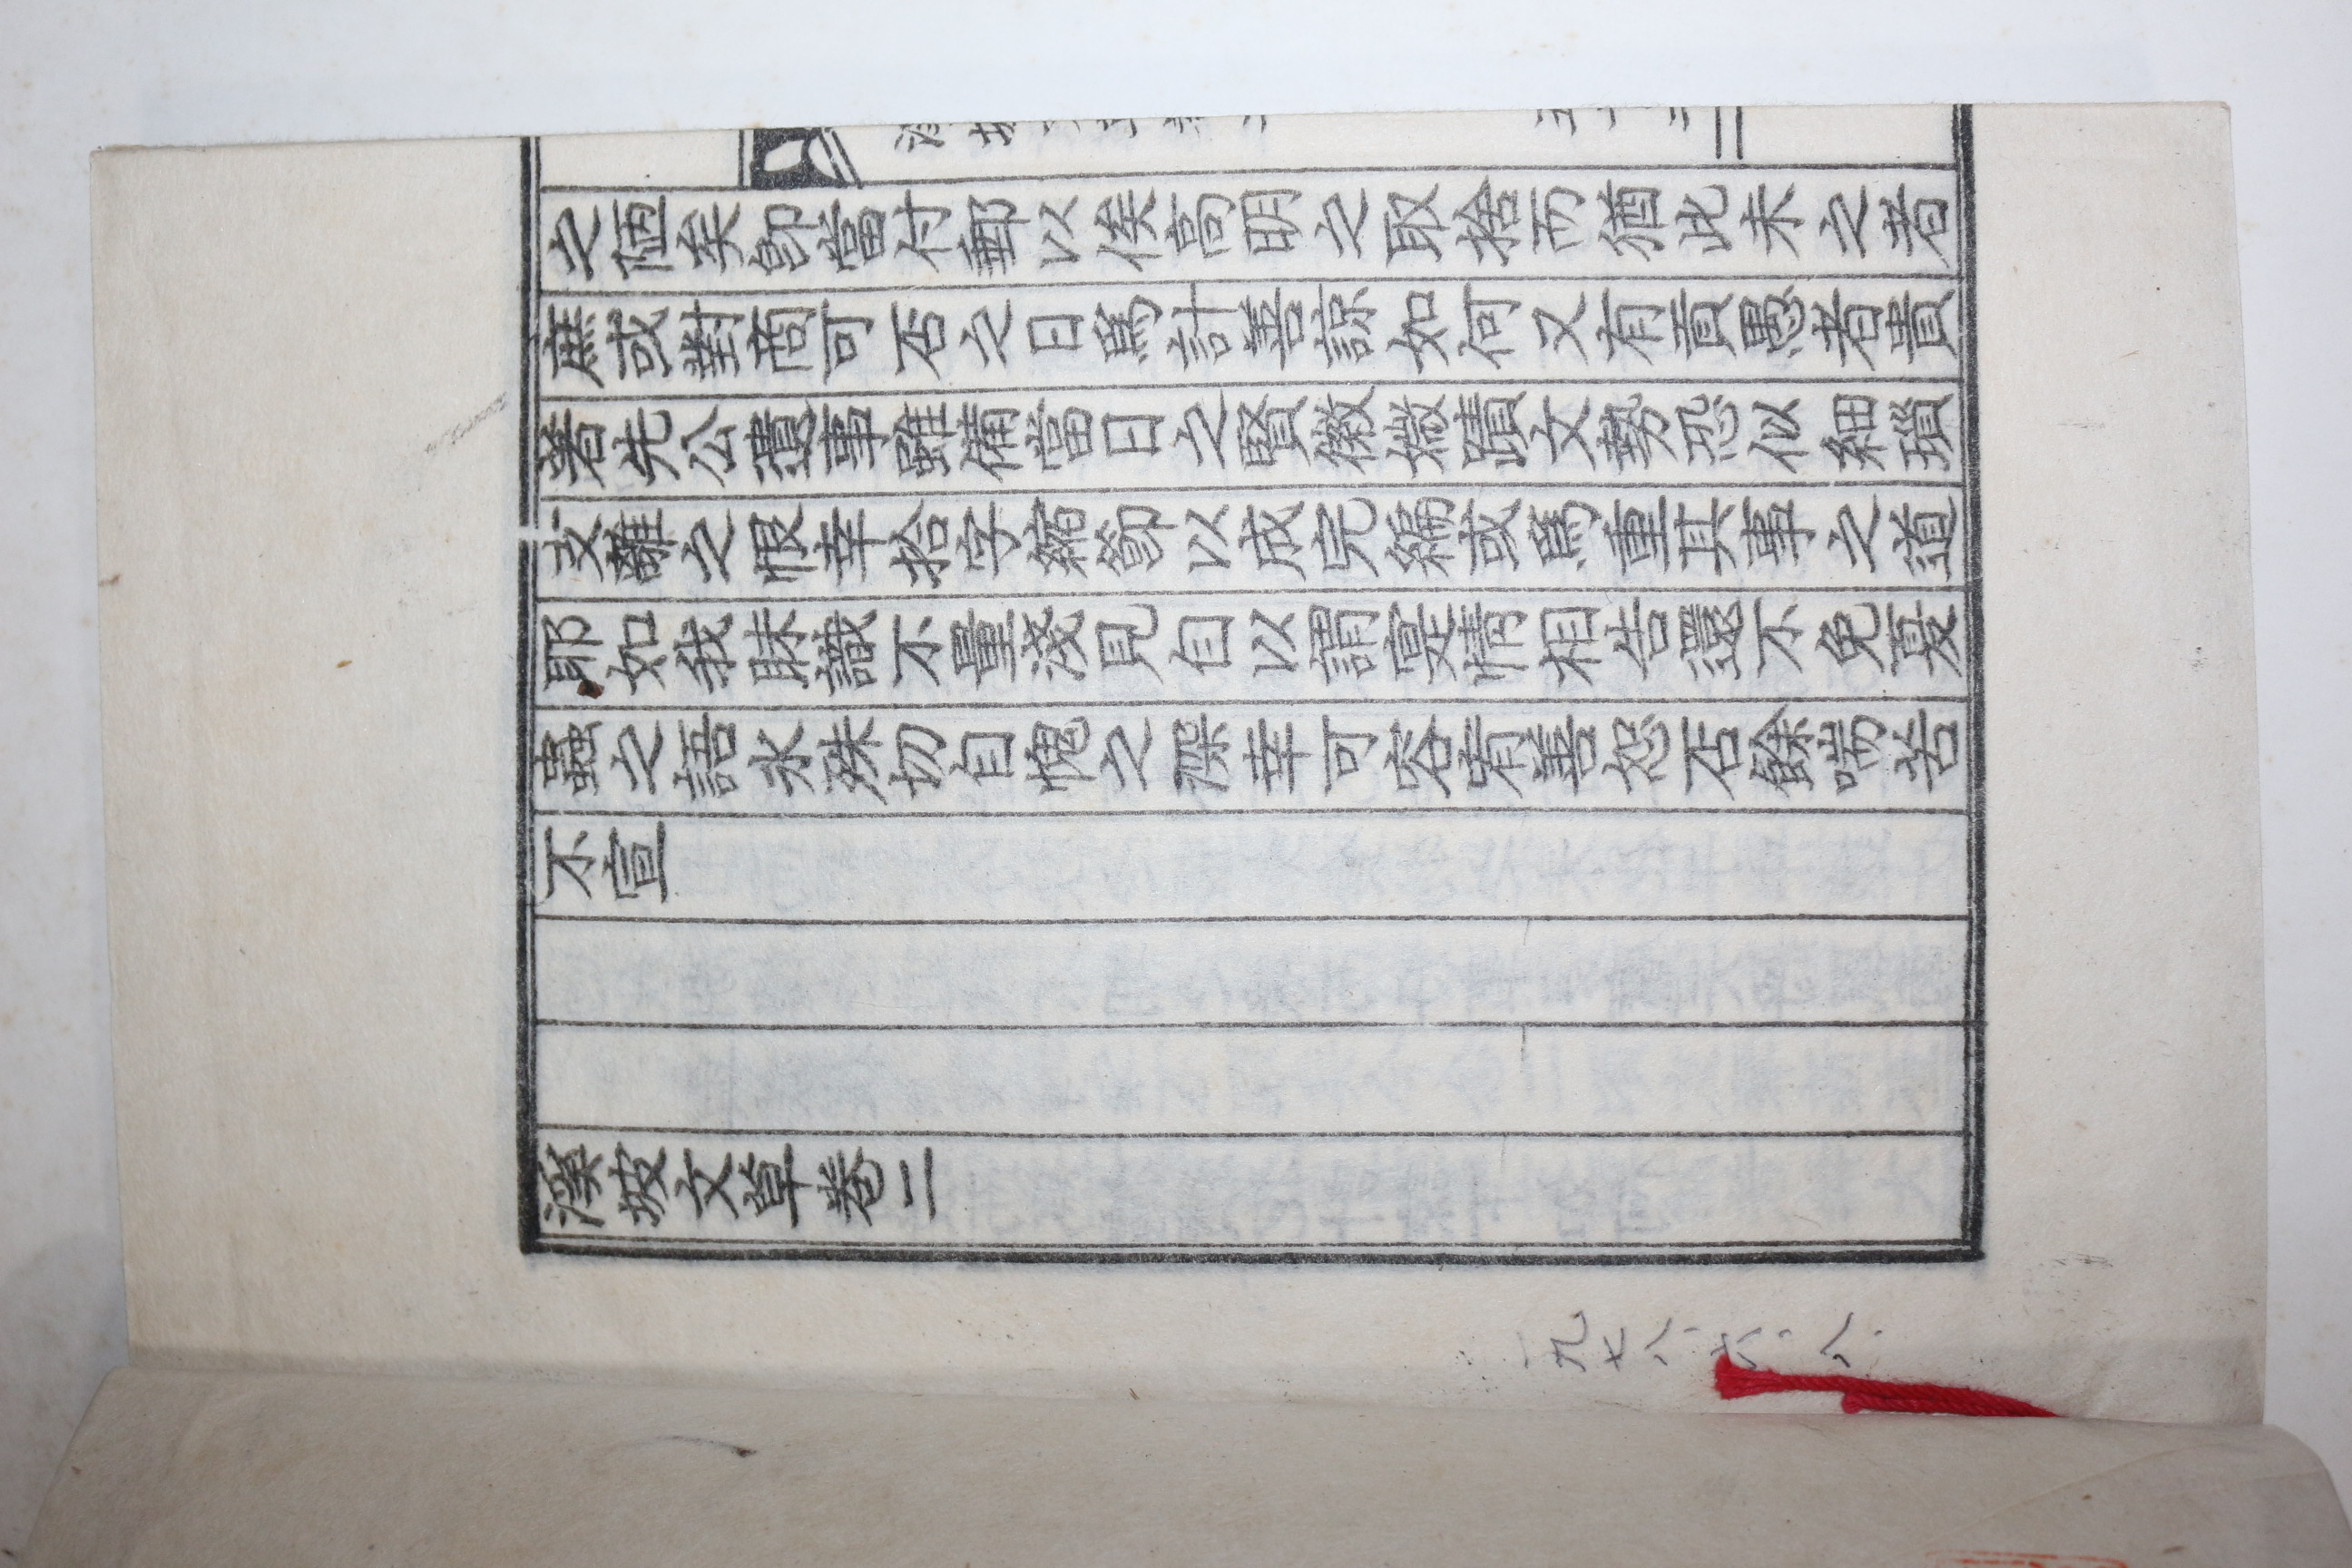 之陋矣卽當付郵以俟高明之取捨而猶此未之者
庶或對商可否之日爲計善諒如何又有貢愚者貴
著先公遺事雖備當日之賢徽媺蹟文勢恐似細瑣
支離之恨幸拾字縮節以成完編或爲重其事之道
耶如我昧識不量淺見自以謂寔情相告還不免夏
蟲之語氷殊切自愧之深幸可容宥善恕否餘喘苦
不宣
溪坡文草卷二
一九七八、六、八、